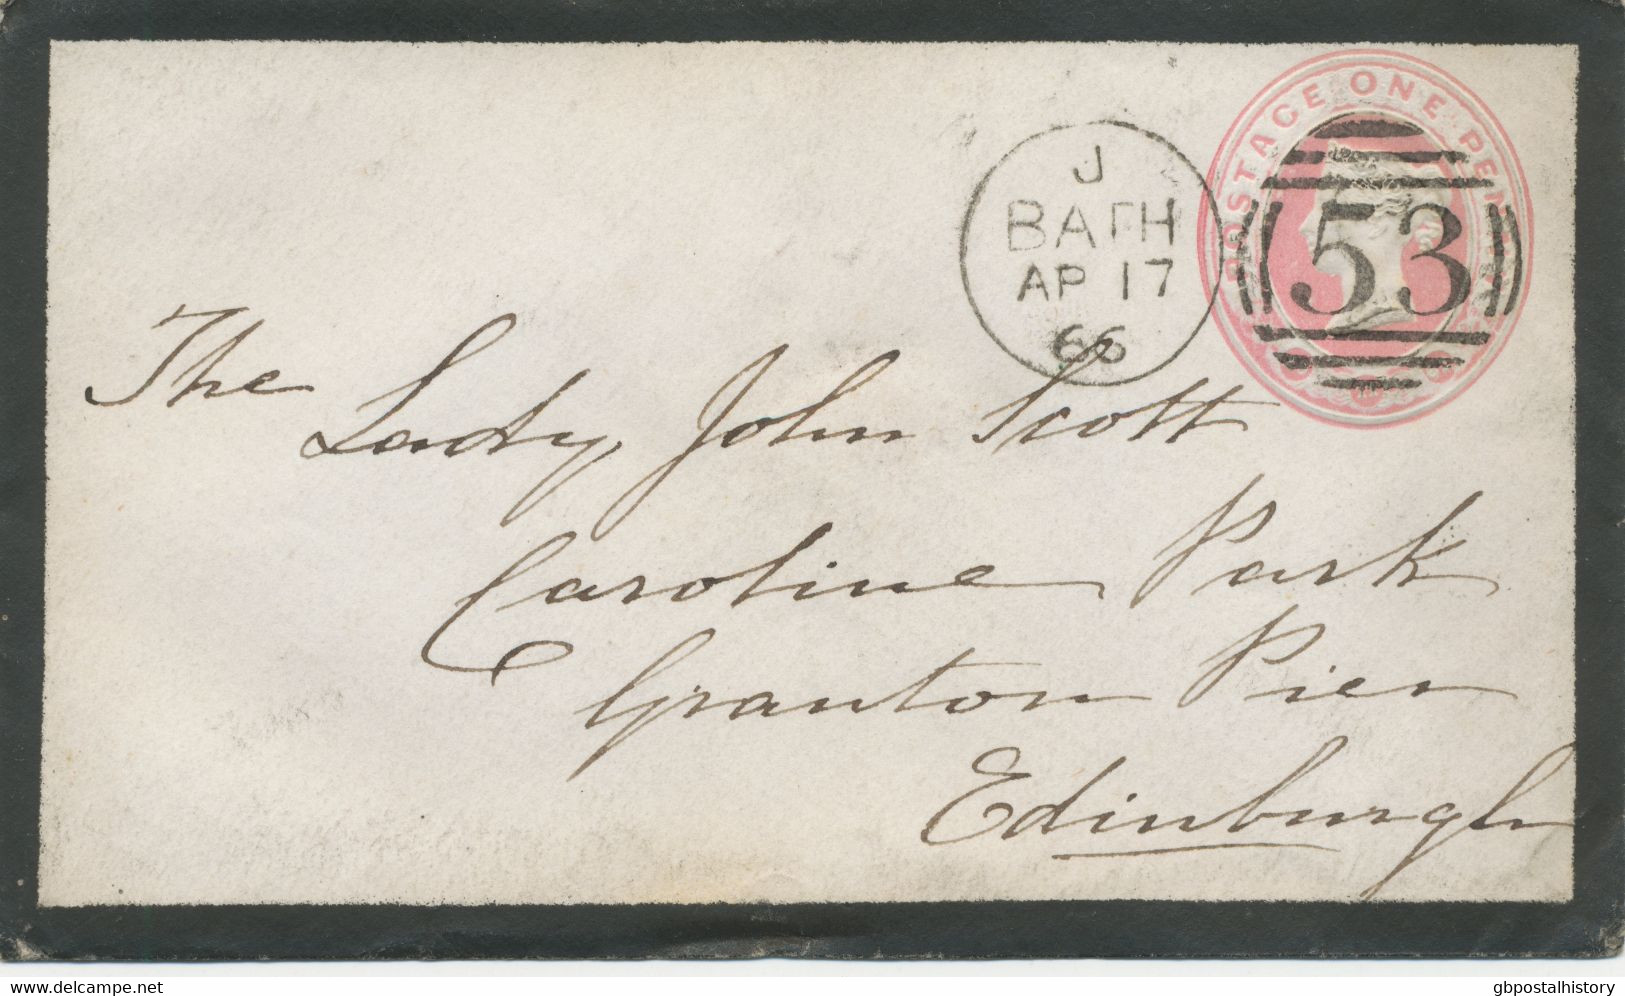 POSTAGE ONE PENNY
J
BATH
AP 17
66
53
The
Lady John Scott
Caroline Park
Granton Pier
Edinburgh
www.delcampe.net
gbpostalhistory